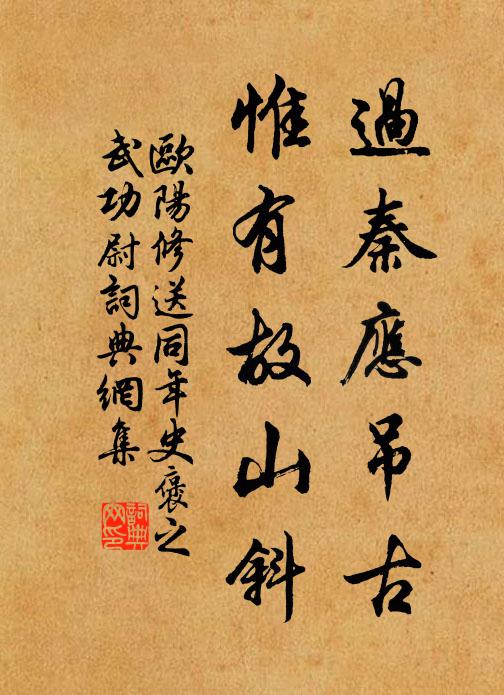 過秦應吊古
惟有故山斜
歐陽修送同年史褒之
武功尉詞典網集
詞典
网印